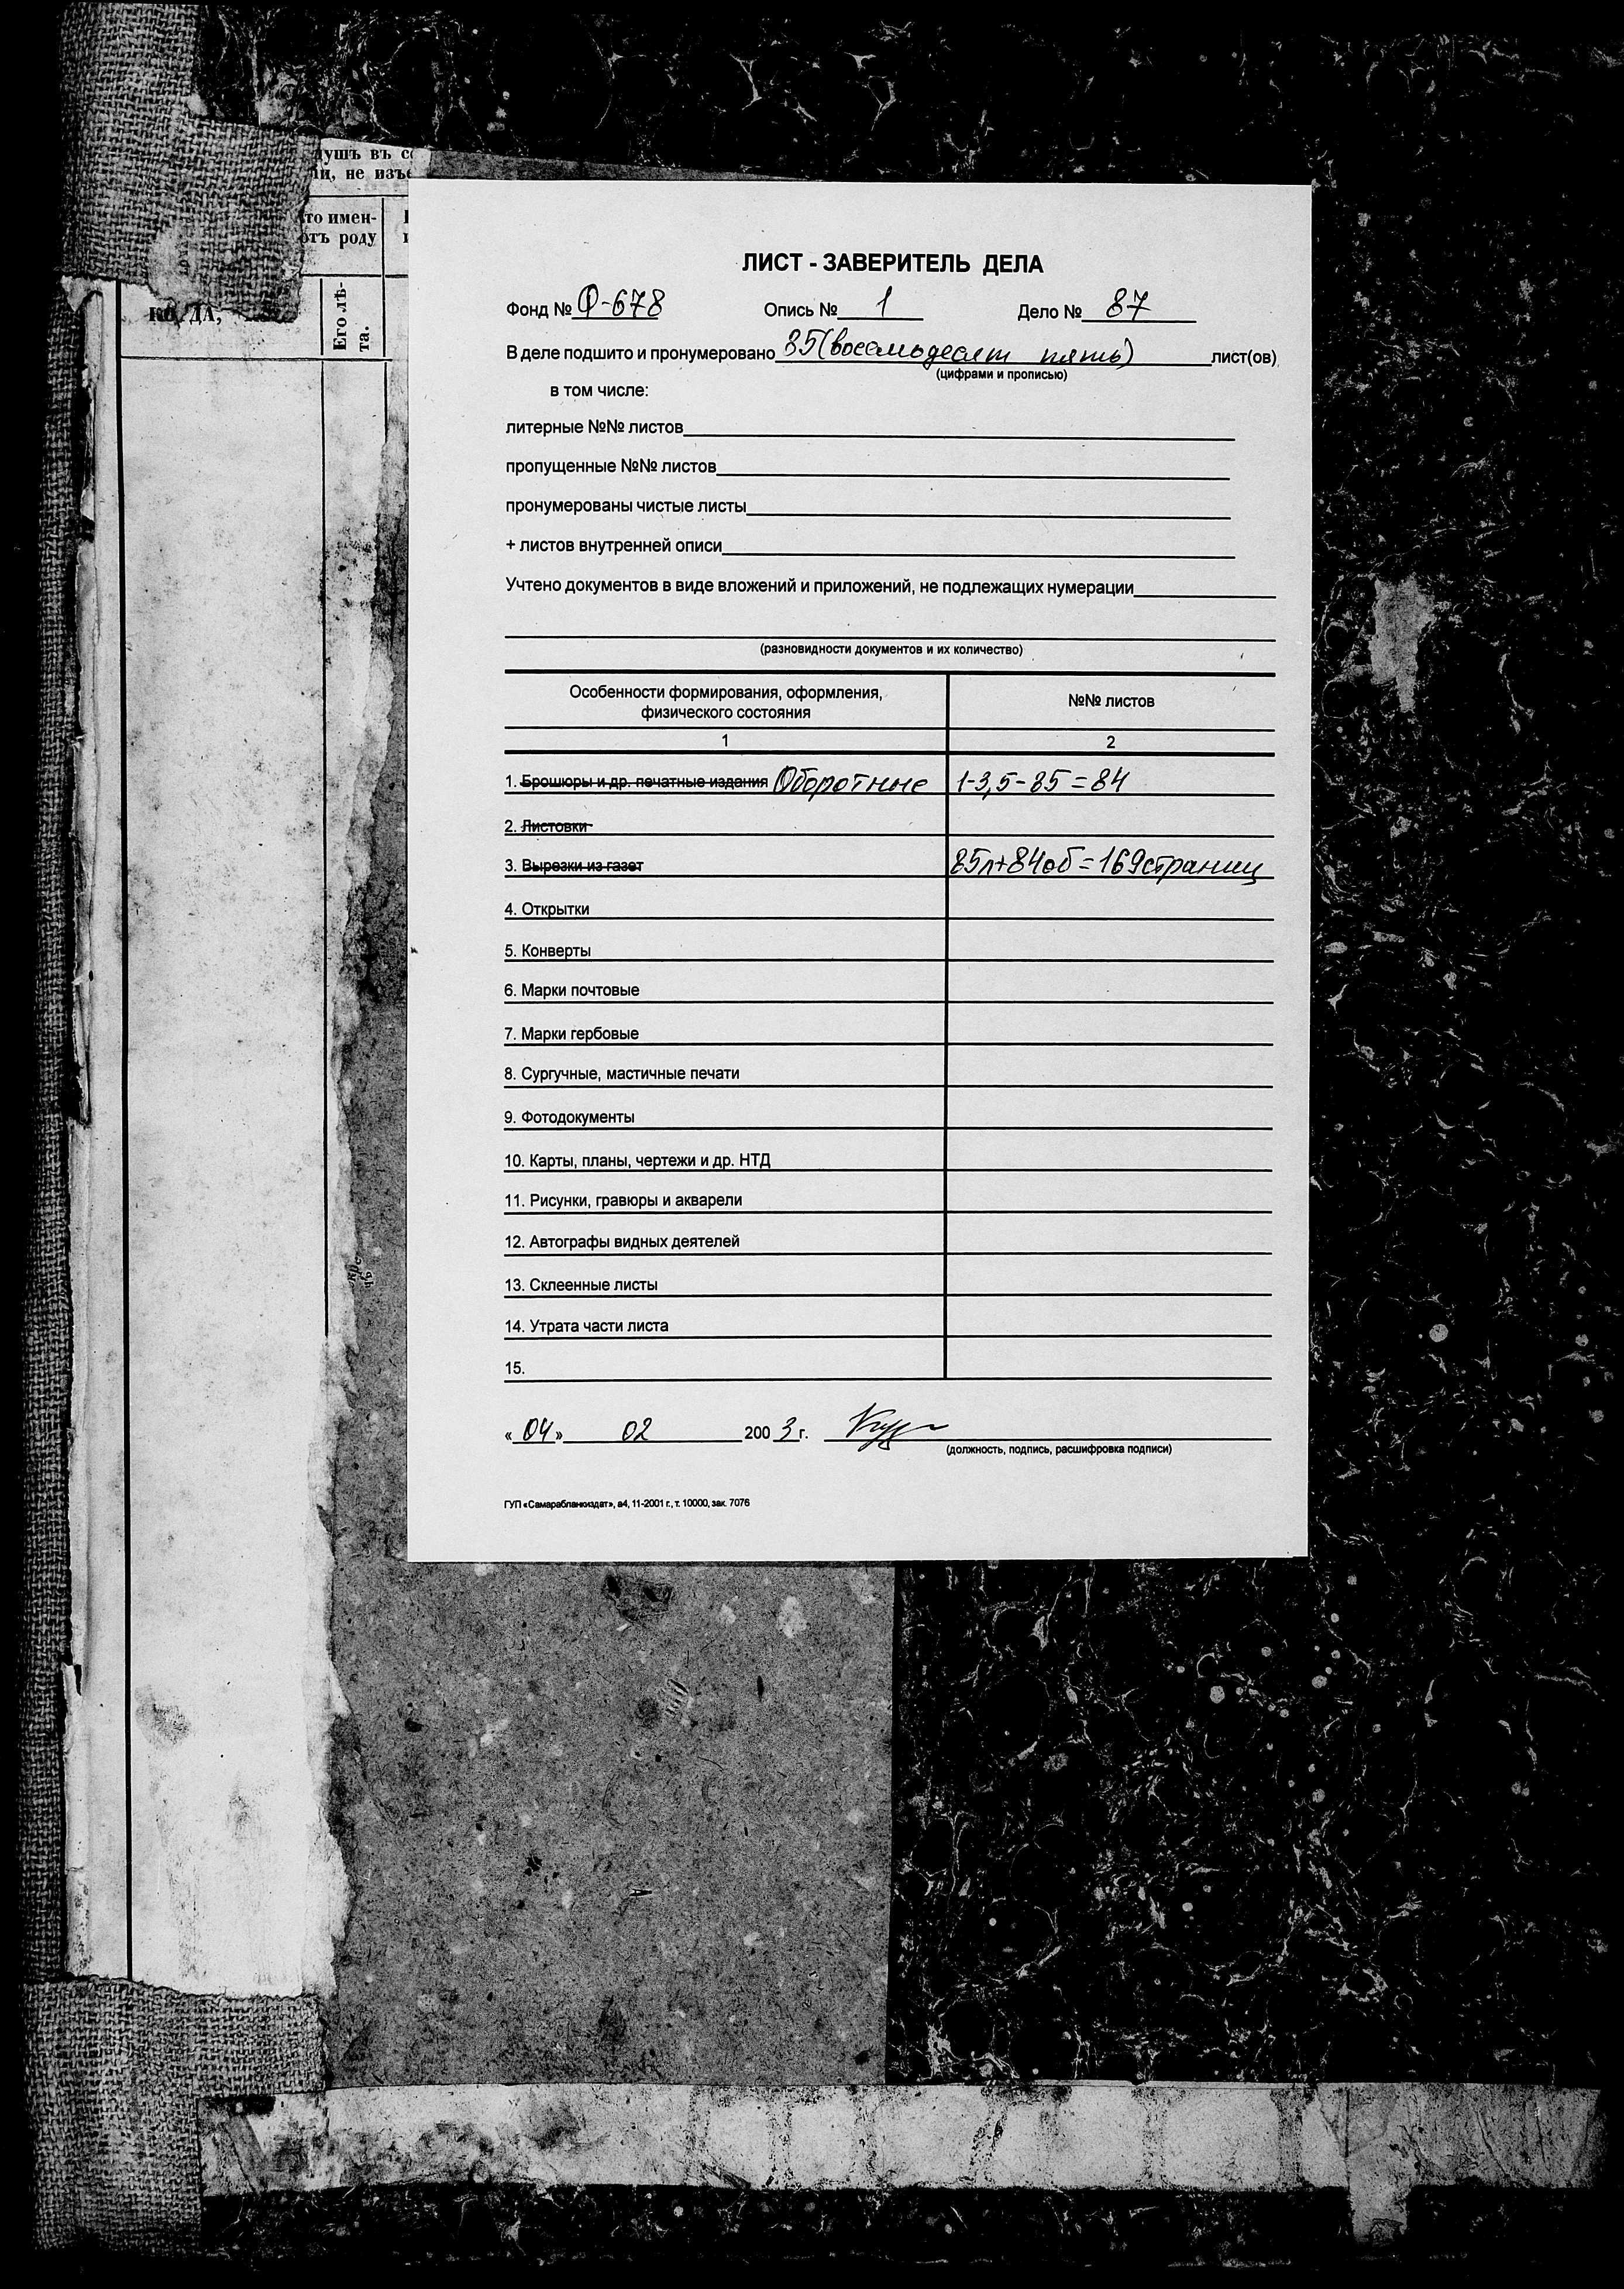 душъ въ
не изъ
имен-
отъ роду
Его лѣ-
та.
ЛИСТ - ЗАВЕРИТЕЛЬ ДЕЛА
Фонд № Ф-678 Опись № 1 Дело № 87
В деле подшито и пронумеровано 85 (восемьдесят пять) лист(ов)
(цифрами и прописью)
в том числе:
литерные №№ листов
пропущенные №№ листов
пронумерованы чистые листы
+ листов внутренней описи
Учтено документов в виде вложений и приложений, не подлежащих нумерации
(разновидности документов и их количество)
Особенности формирования, оформления,
физического состояния
№№ листов
1 2
1. Брошюры и др. печатные издания Оборотные 1-3, 5-85 = 84
2. Листовки
3. Вырезки из газет 85л+84об = 169 страниц
4. Открытки
5. Конверты
6. Марки почтовые
7. Марки гербовые
8. Сургучные, мастичные печати
9. Фотодокументы
10. Карты, планы, чертежи и др. НТД
11. Рисунки, гравюры и акварели
12. Автографы видных деятелей
13. Склеенные листы
14. Утрата части листа
15.
« 04 » 02 2003 г.
(должность, подпись, расшифровка подписи)
ГУП «Самарабланкиздат», а4, 11-2001 г., т. 10000, зак. 7076